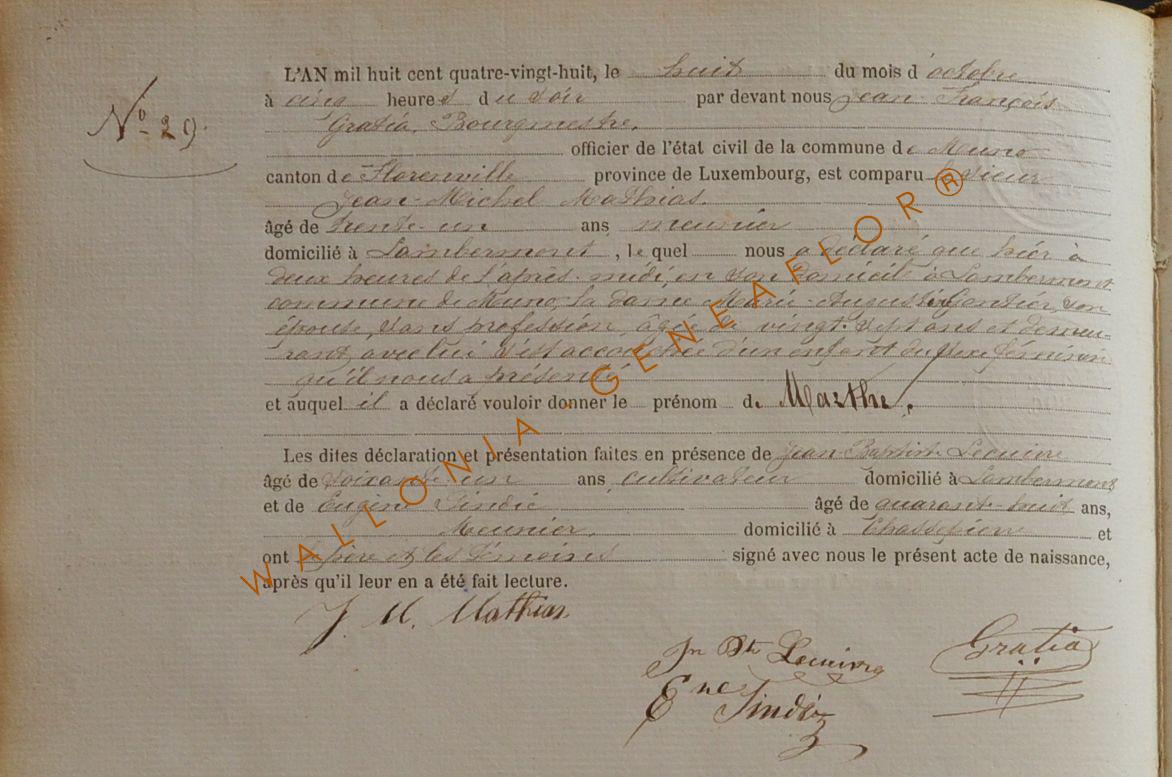 N° 29.
L'AN mil huit cent quatre-vingt-huit, le huit du mois d'octobre
à cinq heures du soir par devant nous Jean François
Gratia, Bourgmestre,
officier de l'état civil de la commune de Muno
canton de Florenville province de Luxembourg, est comparu le sieur
Jean-Michel Mathias.
âgé de trente-un ans meunier
domicilié à Lambermont, le quel nous a déclaré que hier à
deux heures de l'après-midi, en son domicil à Lambermont
commune de Muno, la dame Marie-Augustin Gontier, son
épouse, sans profession, âgée de vingt-sept ans et demeu-
rant avec lui s'est accouchée d'un enfant du sexe féminin
qu'il nous a présenté
et auquel il a déclaré vouloir donner le prénom de Marthe.
Les dites déclaration et présentation faites en présence de Jean-Baptiste
âgé de soixante-un ans, cultivateur domicilié à Lambermont
et de Eugène âgé de quarante-huit ans,
Meunier, domicilié à Chassepierre et
ont le père et les témoins signé avec nous le présent acte de naissance,
après qu'il leur en a été fait lecture.
J. M. Mathias
Jn Bte
Gratia
Ene
WALLONIA - GENEAFLOR ®